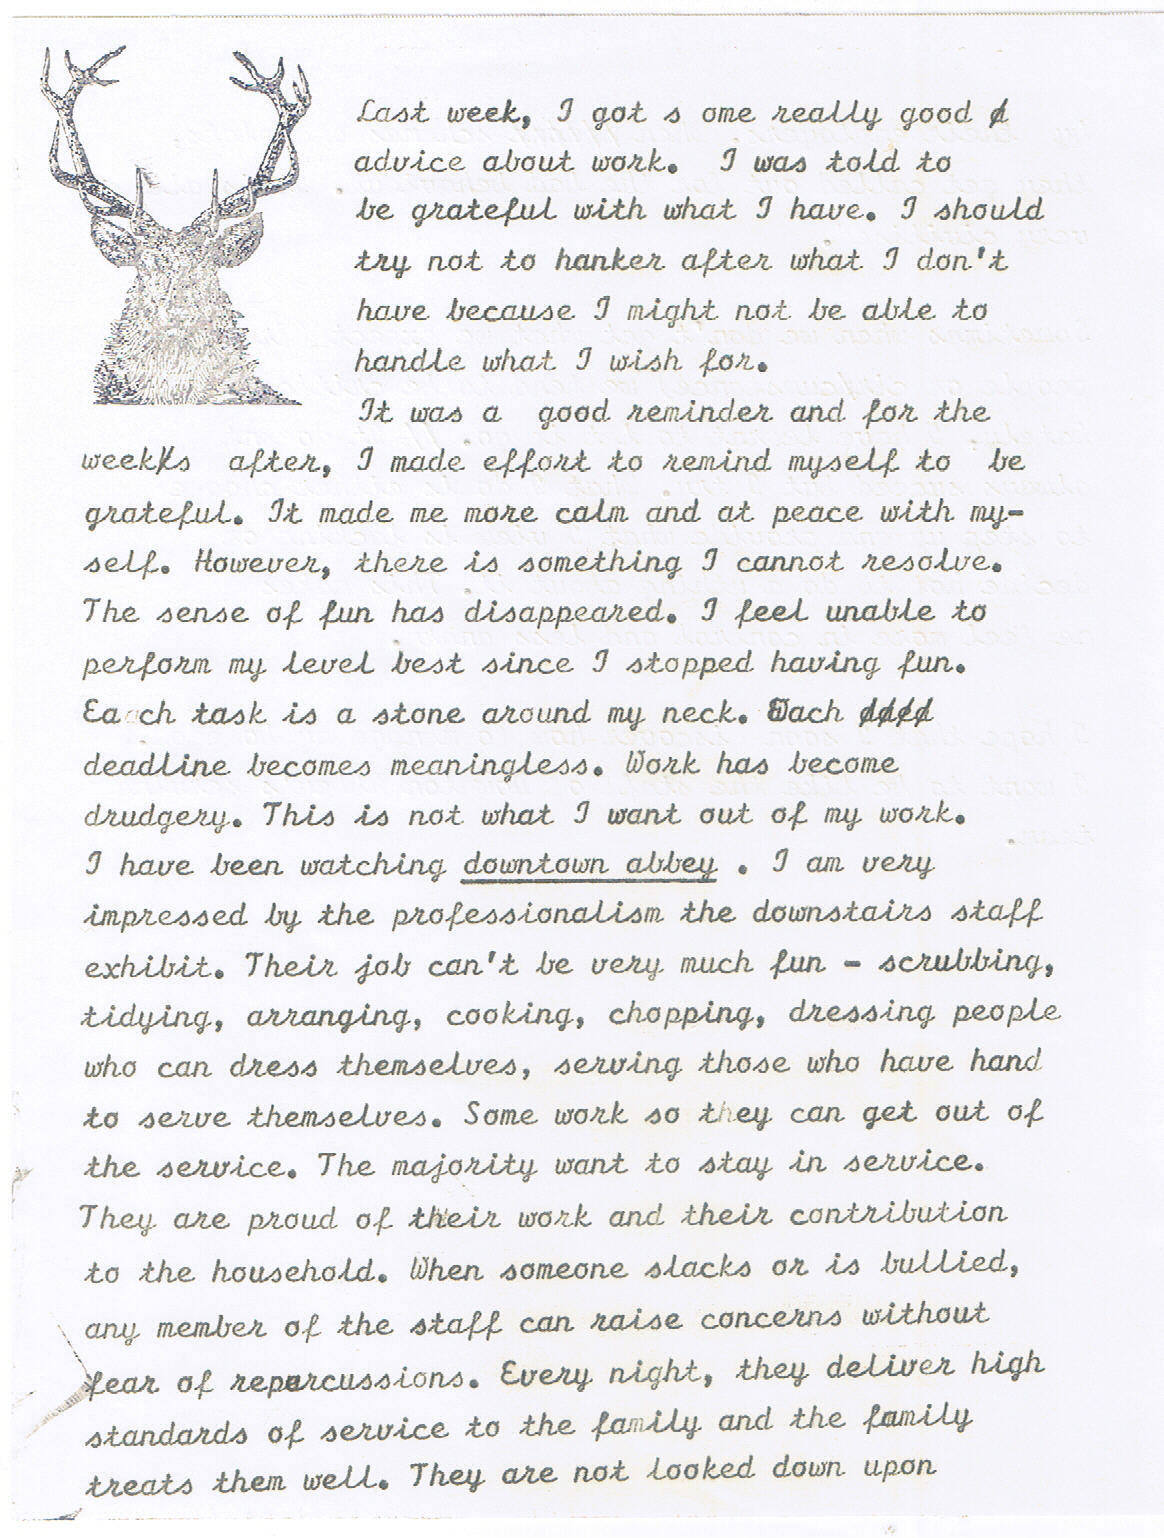 Last week, I got s ome really good
advice about work. I was told to
be grateful with what I have. I should
try not to hanker after what I don't
have because I might not be able to
handle what I wish for.
It was a good reminder and for the
weeks after, I made effort to remind myself to be
grateful. It made me more calm and at peace with my-
self. However, there is something I cannot resolve.
The sense of fun has disappeared. I feel unable to
perform my level best since I stopped having fun.
Each task is a stone around my neck. Each
deadline becomes meaningless. Work has become
drudgery. This is not what I want out of my work.
I have been watching downtown abbey . I am very
impressed by the professionalism the downstairs staff
exhibit. Their job can't be very much fun - scrubbing,
tidying, arranging, cooking, chopping, dressing people
who can dress themselves, serving those who have hand
to serve themselves. Some work so they can get out of
the service. The majority want to stay in service.
They are proud of their work and their contribution
to the household. When someone slacks or is bullied,
any member of the staff can raise concerns without
fear of repurcussions. Every night, they deliver high
standards of service to the family and the family
treats them well. They are not looked down upon